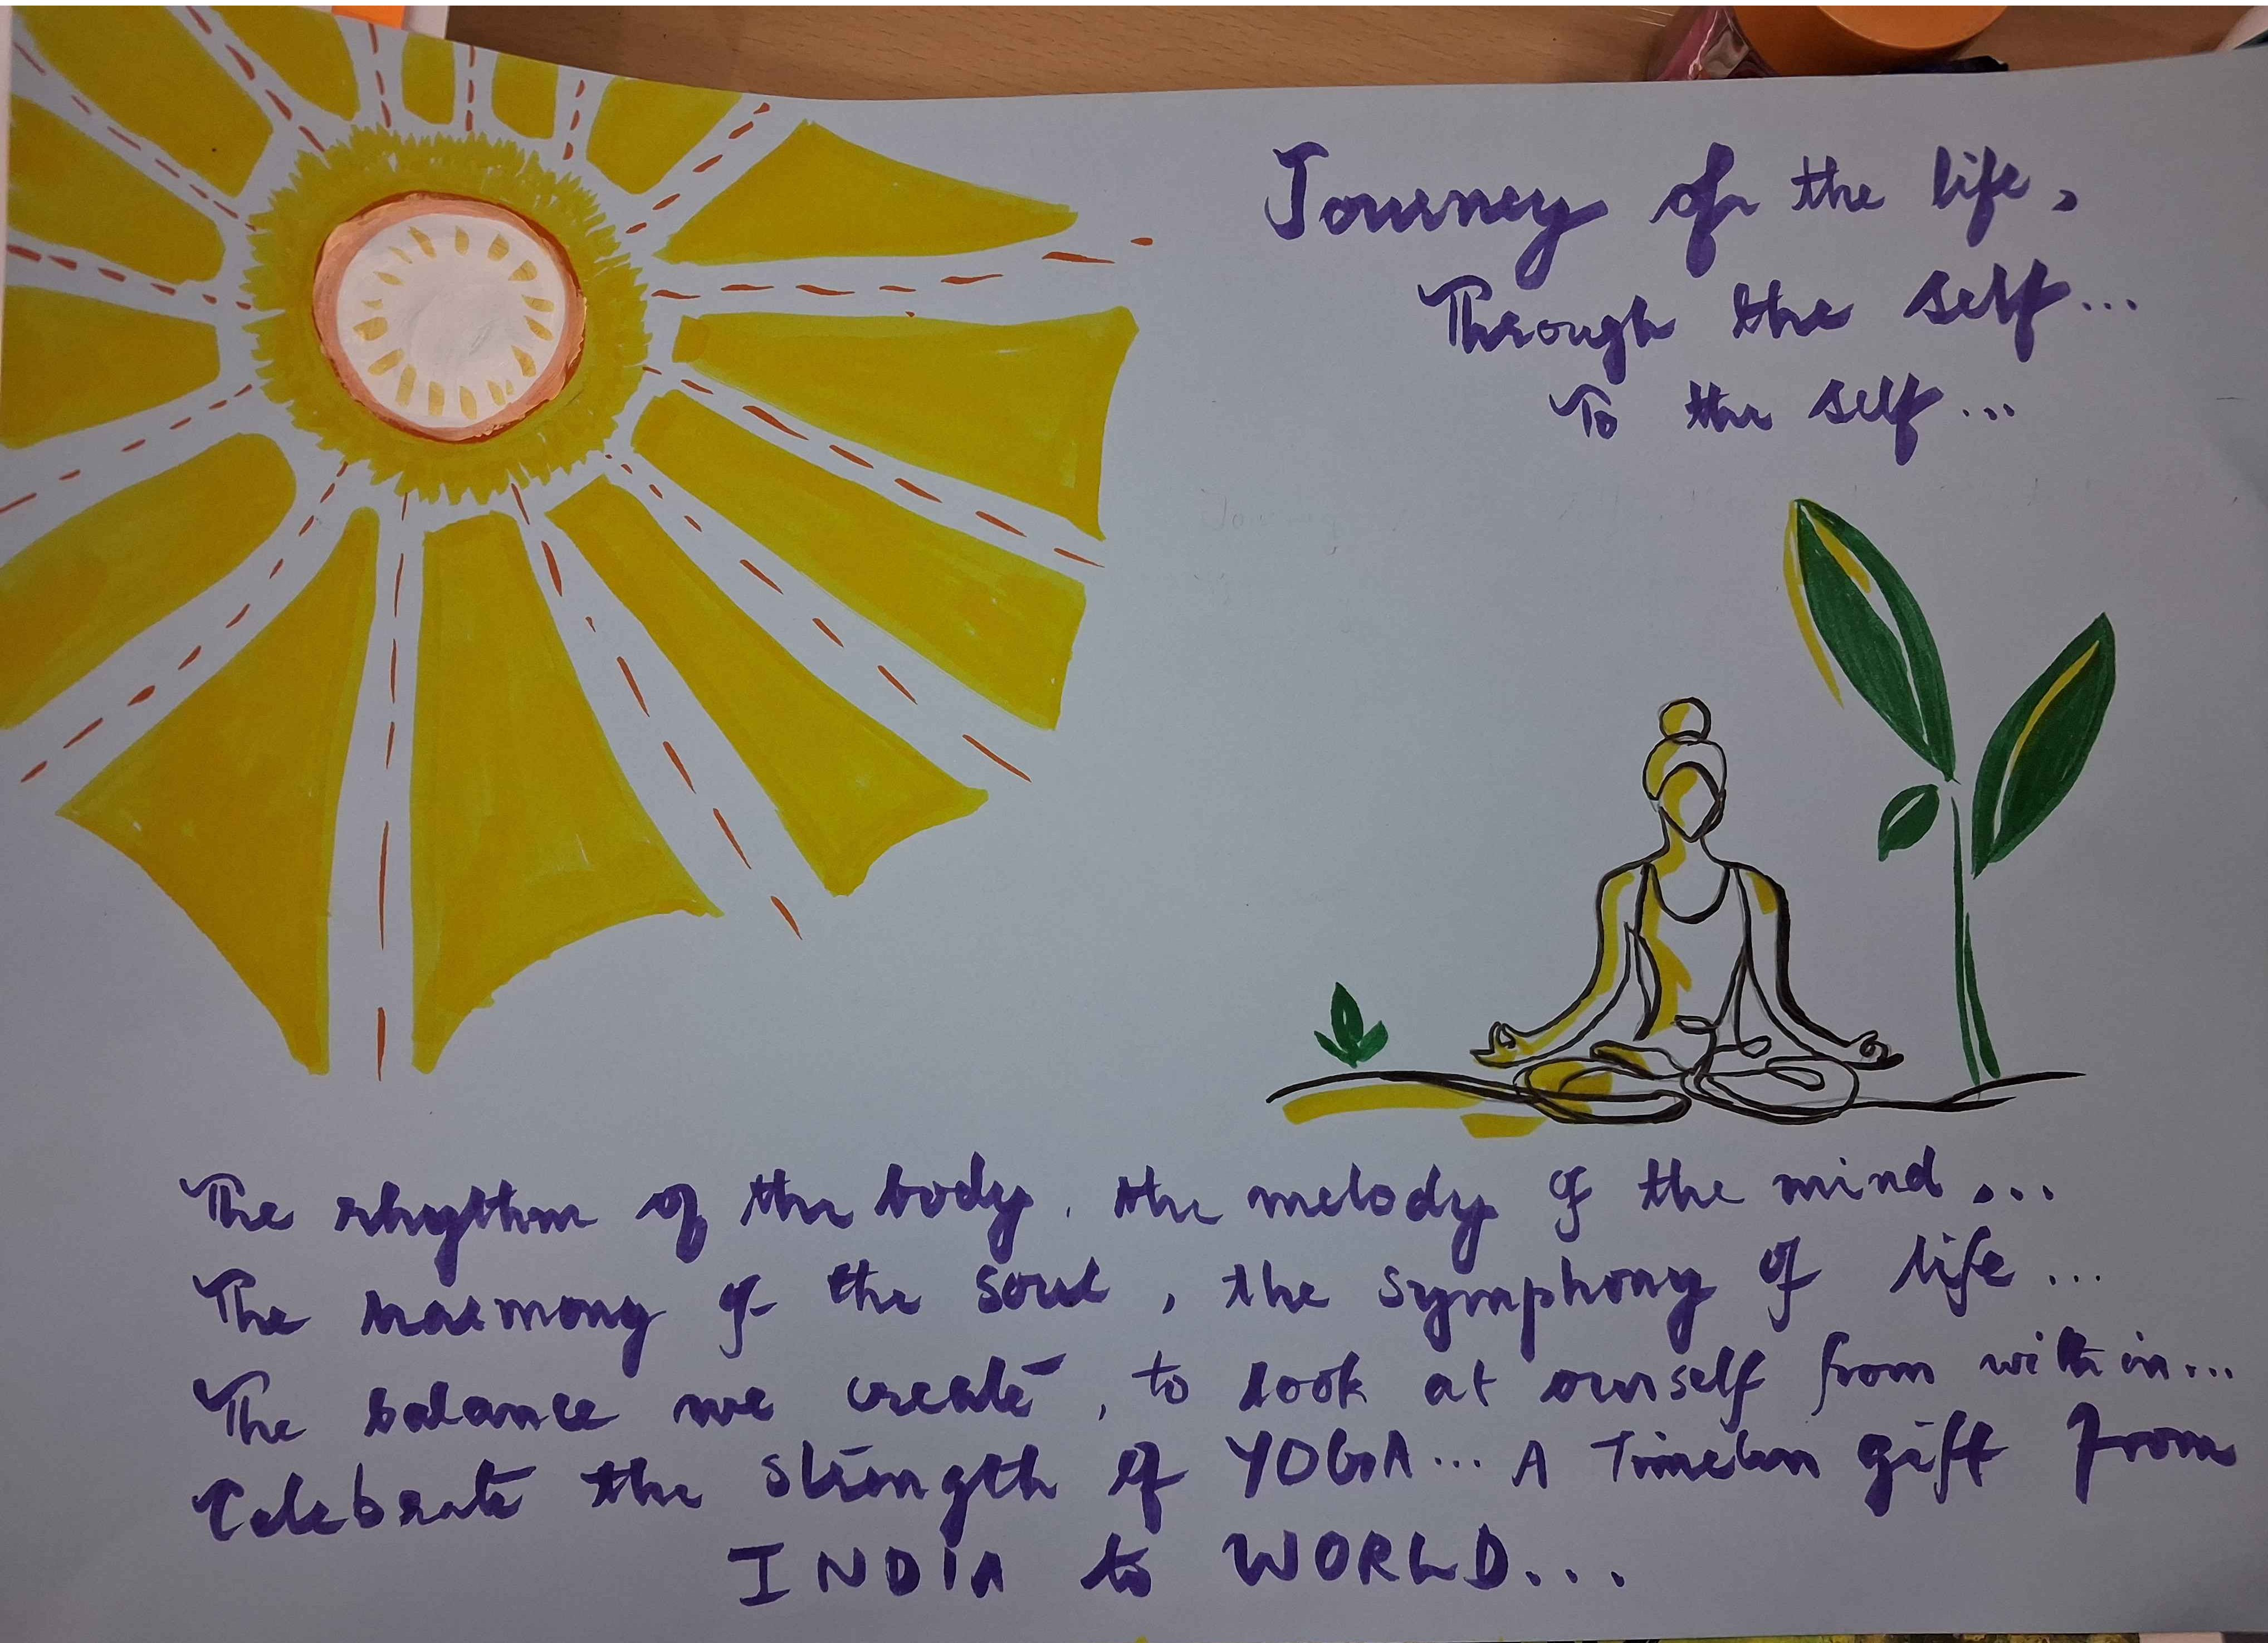 Journey of the life,
Through the self...
To the self...
The rhythm of the body, the melody of the mind...
The harmony of the soul, the symphony of life...
The balance we create, to look at ourself from within...
Celebrate the strength of YOGA... A Timeless gift from
INDIA to WORLD...